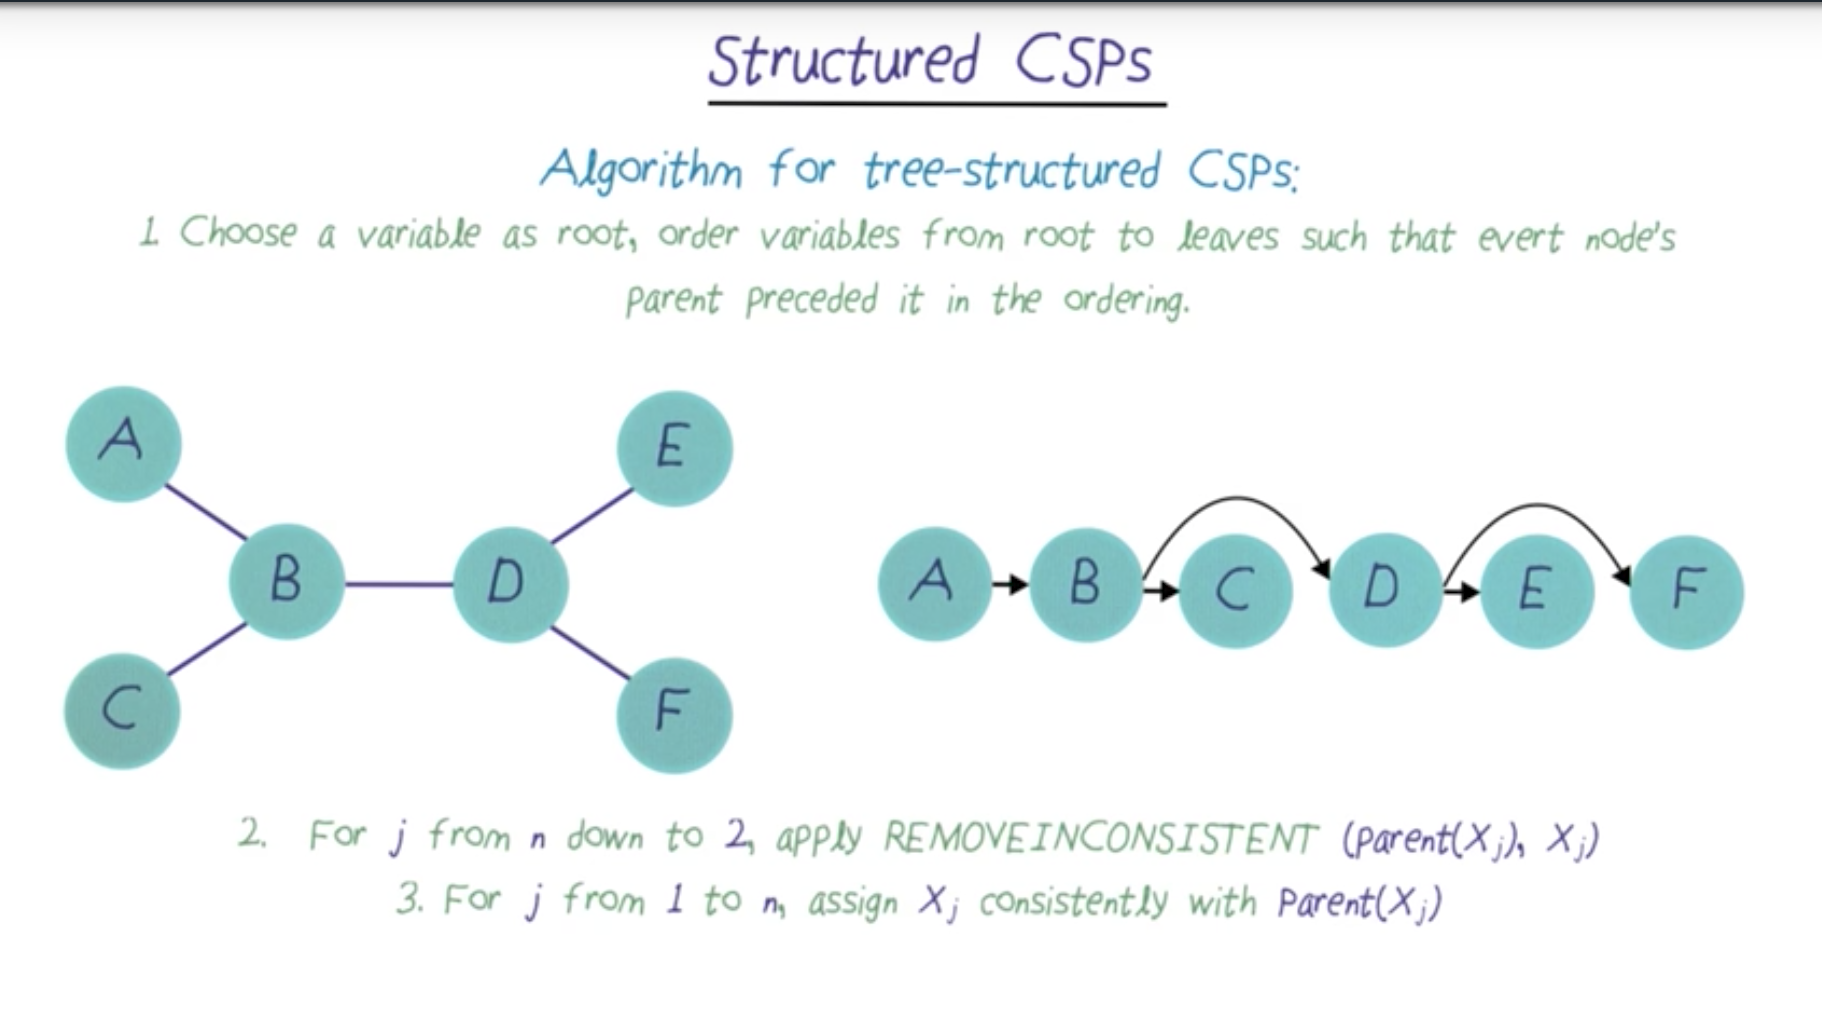 Structured CSPs
Algorithm for tree-structured CSPs:
1 Choose a variable as root, order variables from root to leaves such that evert node's
parent preceded it in the ordering.
A
E
B
D
C
F
A
B
C
D
E
F
2. For j from n down to 2, apply REMOVEINCONSISTENT (parent(Xj), Xj)
3. For j from 1 to n, assign Xj consistently with Parent(Xj)